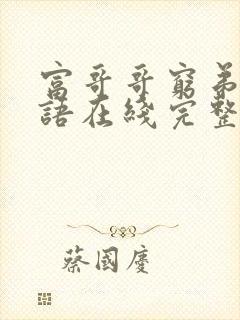 富哥哥窮弟
語在綫完整
蔡國慶